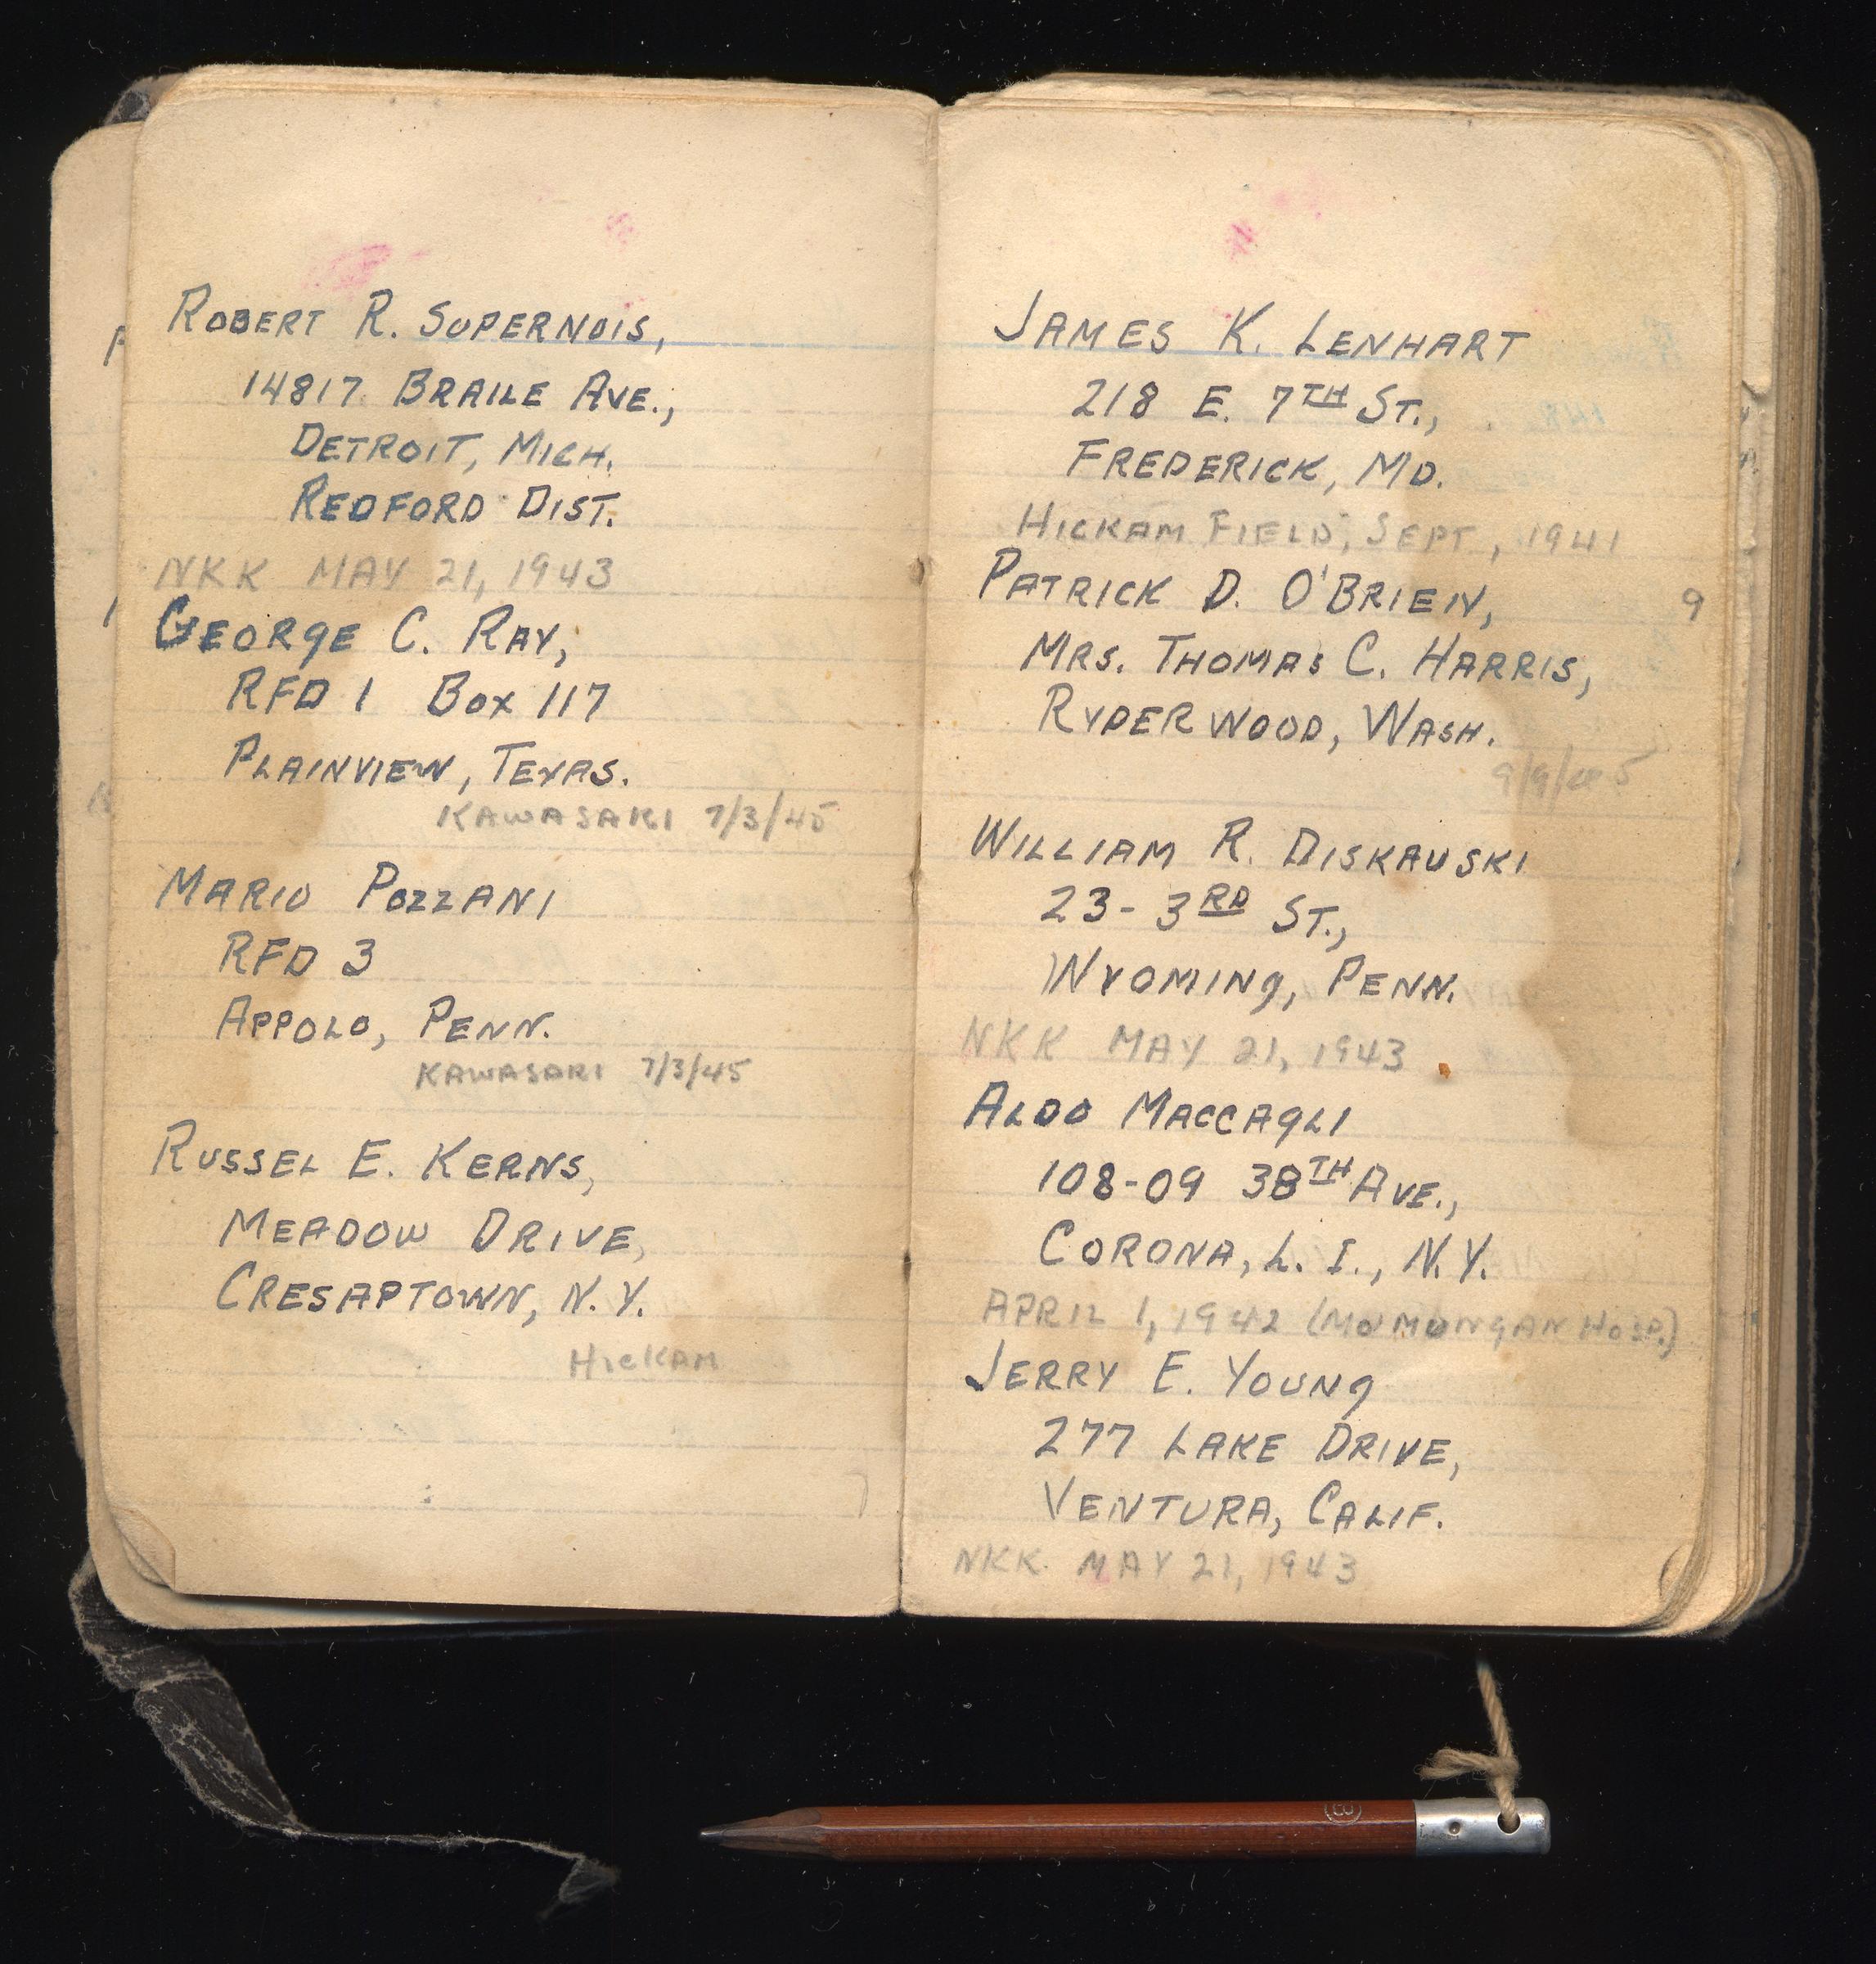 ROBERT R. SUPERNOIS,
14817 BRAILE AVE.,
DETROIT, MICH.
REDFORD DIST.
NKK MAY 21, 1943
GEORGE C. RAY,
RFD 1 BOX 117
PLAINVIEW, TEXAS.
KAWASAKI 7/3/45
MARIO POZZANI
RFD 3
APPOLO, PENN.
KAWASAKI 7/3/45
RUSSEL E. KERNS,
MEADOW DRIVE,
CRESAPTOWN, N.Y.
HICKAM
JAMES K. LENHART
218 E. 7TH ST.,
FREDERICK, MD.
HICKAM FIELD, SEPT, 1941
PATRICK D. O'BRIEN, 9
MRS. THOMAS C. HARRIS,
RYDERWOOD, WASH.
9/9/45
WILLIAM R. DISKAUSKI
23-3RD ST.,
WYOMING, PENN.
NKK MAY 21, 1943
ALDO MACCAGLI
108-09 38TH AVE.,
CORONA, L. I., N.Y.
APRIL 1, 1942 (MOMUNGAN HOSP.)
JERRY E. YOUNG
277 LAKE DRIVE,
VENTURA, CALIF.
NKK MAY 21, 1943